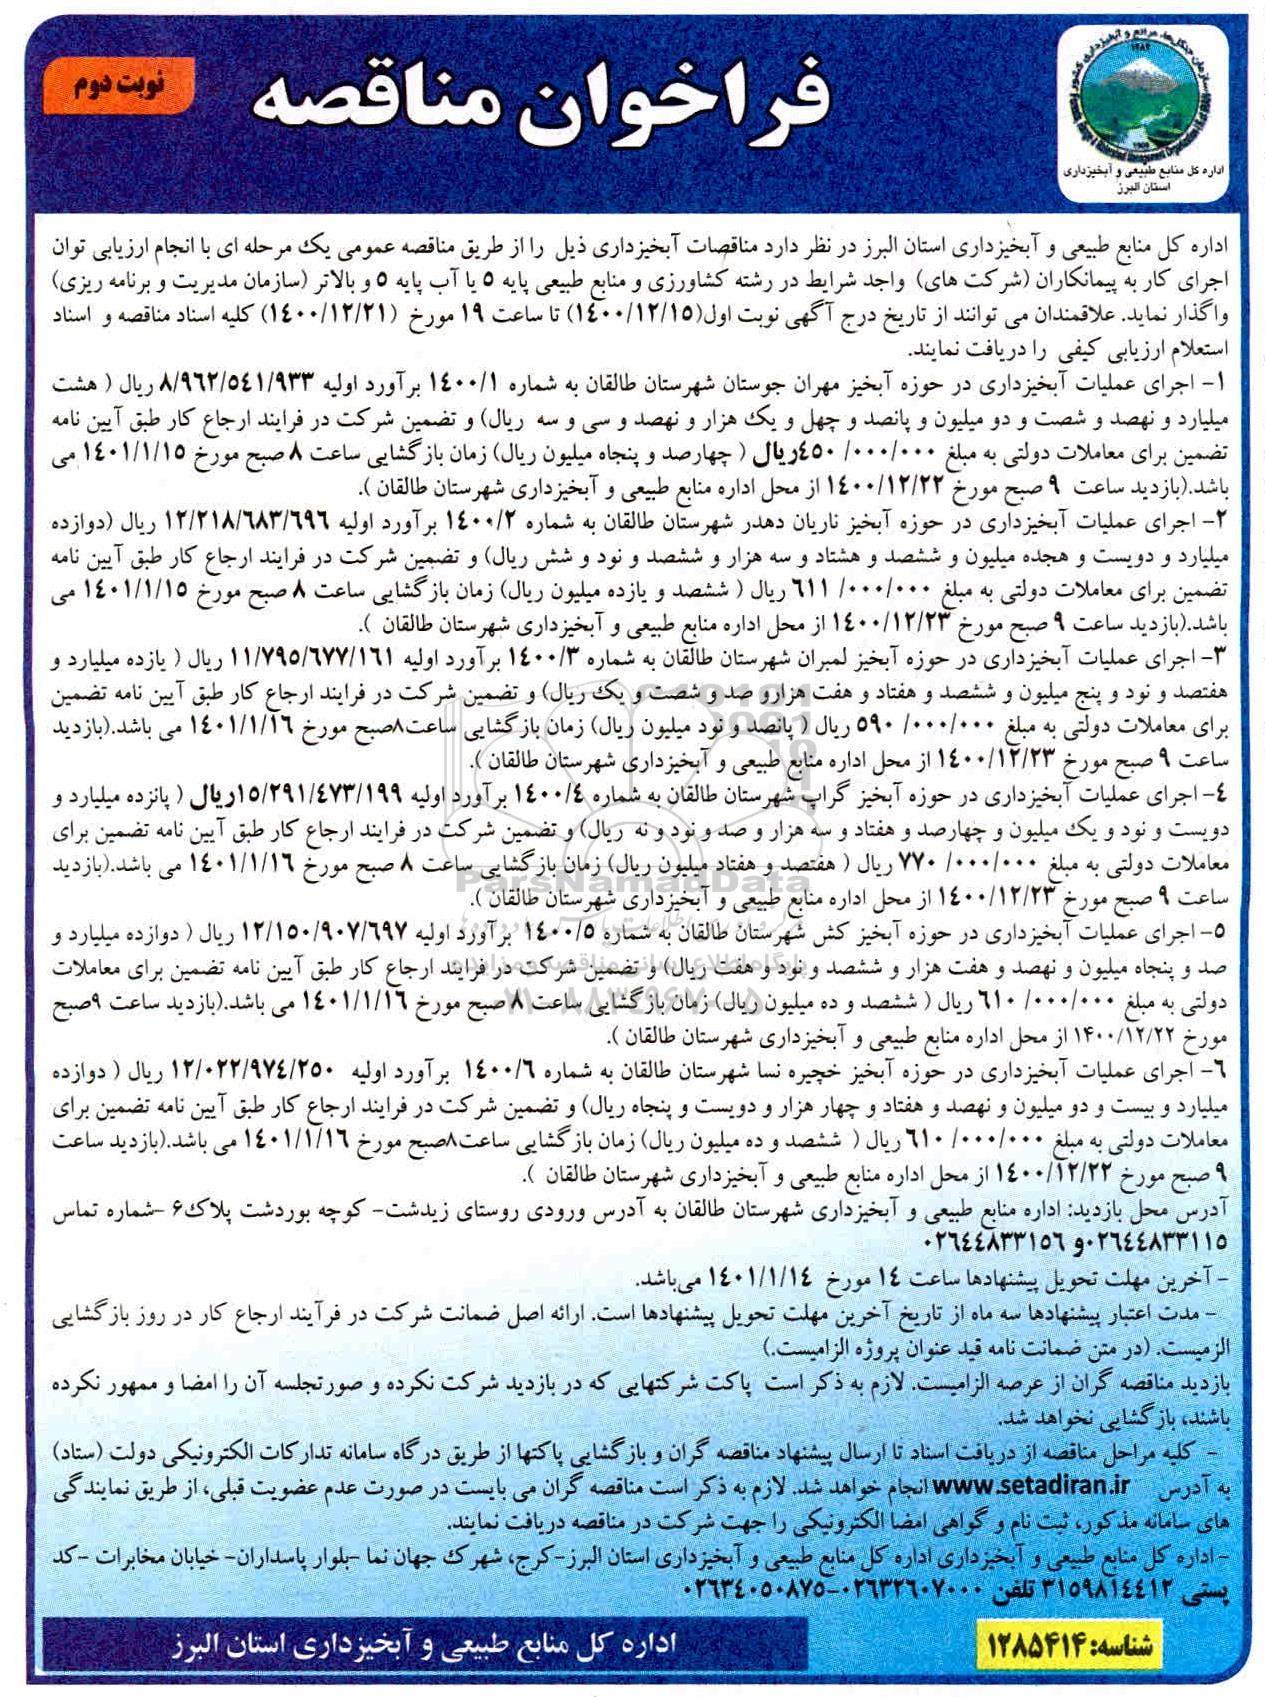 سازمان جنگل‌ها، مراتع و آبخیزداری کشور
اداره کل منابع طبیعی و آبخیزداری
استان البرز
فراخوان مناقصه
نوبت دوم
اداره کل منابع طبیعی و آبخیزداری استان البرز در نظر دارد مناقصات آبخیزداری ذیل را از طریق مناقصه عمومی یک مرحله ای با انجام ارزیابی توان
اجرای کار به پیمانکاران (شرکت های) واجد شرایط در رشته کشاورزی و منابع طبیعی پایه ۵ یا آب پایه ۵ و بالاتر (سازمان مدیریت و برنامه ریزی)
واگذار نماید. علاقمندان می توانند از تاریخ درج آگهی نوبت اول(۱۴۰۰/۱۲/۱۵) تا ساعت ۱۹ مورخ (۱۴۰۰/۱۲/۲۱) کلیه اسناد مناقصه و اسناد
استعلام ارزیابی کیفی را دریافت نمایند.
۱- اجرای عملیات آبخیزداری در حوزه آبخیز مهران جوستان شهرستان طالقان به شماره ۱۴۰۰/۱ برآورد اولیه ۸/۹۶۲/۵۴۱/۹۳۳ ریال ( هشت
میلیارد و نهصد و شصت و دو میلیون و پانصد و چهل و یک هزار و نهصد و سی و سه ریال) و تضمین شرکت در فرایند ارجاع کار طبق آیین نامه
تضمین برای معاملات دولتی به مبلغ ۴۵۰/۰۰۰/۰۰۰ریال ( چهارصد و پنجاه میلیون ریال) زمان بازگشایی ساعت ۸ صبح مورخ ۱۴۰۱/۱/۱۵ می
باشد.(بازدید ساعت ۹ صبح مورخ ۱۴۰۰/۱۲/۲۲ از محل اداره منابع طبیعی و آبخیزداری شهرستان طالقان ).
۲- اجرای عملیات آبخیزداری در حوزه آبخیز ناریان دهدر شهرستان طالقان به شماره ۱۴۰۰/۲ برآورد اولیه ۱۲/۲۱۸/۶۸۳/۶۹۶ ریال (دوازده
میلیارد و دویست و هجده میلیون و ششصد و هشتاد و سه هزار و ششصد و نود و شش ریال) و تضمین شرکت در فرایند ارجاع کار طبق آیین نامه
تضمین برای معاملات دولتی به مبلغ ۶۱۱/۰۰۰/۰۰۰ ریال ( ششصد و یازده میلیون ریال) زمان بازگشایی ساعت ۸ صبح مورخ ۱۴۰۱/۱/۱۵ می
باشد.(بازدید ساعت ۹ صبح مورخ ۱۴۰۰/۱۲/۲۳ از محل اداره منابع طبیعی و آبخیزداری شهرستان طالقان ).
۳- اجرای عملیات آبخیزداری در حوزه آبخیز لمبران شهرستان طالقان به شماره ۱۴۰۰/۳ برآورد اولیه ۱۱/۷۹۵/۶۷۷/۱۶۱ ریال ( یازده میلیارد و
هفتصد و نود و پنج میلیون و ششصد و هفتاد و هفت هزارو صد و شصت و یک ریال) و تضمین شرکت در فرایند ارجاع کار طبق آیین نامه تضمین
برای معاملات دولتی به مبلغ ۵۹۰/۰۰۰/۰۰۰ ریال ( پانصد و نود میلیون ریال) زمان بازگشایی ساعت۸صبح مورخ ۱۴۰۱/۱/۱۶ می باشد.(بازدید
ساعت ۹ صبح مورخ ۱۴۰۰/۱۲/۲۳ از محل اداره منابع طبیعی و آبخیزداری شهرستان طالقان ).
۴- اجرای عملیات آبخیزداری در حوزه آبخیز گراپ شهرستان طالقان به شماره ۱۴۰۰/۴ برآورد اولیه ۱۵/۲۹۱/۴۷۳/۱۹۹ریال ( پانزده میلیارد و
دویست و نود و یک میلیون و چهارصد و هفتاد و سه هزار و صد و نود و نه ریال) و تضمین شرکت در فرایند ارجاع کار طبق آیین نامه تضمین برای
معاملات دولتی به مبلغ ۷۷۰/۰۰۰/۰۰۰ ریال ( هفتصد و هفتاد میلیون ریال) زمان بازگشایی ساعت ۸ صبح مورخ ۱۴۰۱/۱/۱۶ می باشد.(بازدید
ساعت ۹ صبح مورخ ۱۴۰۰/۱۲/۲۳ از محل اداره منابع طبیعی و آبخیزداری شهرستان طالقان ).
ParsNamadData
۵- اجرای عملیات آبخیزداری در حوزه آبخیز کش شهرستان طالقان به شماره ۱۴۰۰/۵ برآورد اولیه ۱۲/۱۵۰/۹۰۷/۶۹۷ ریال ( دوازده میلیارد و
صد و پنجاه میلیون و نهصد و هفت هزار و ششصد و نود و هفت ریال) و تضمین شرکت در فرایند ارجاع کار طبق آیین نامه تضمین برای معاملات
دولتی به مبلغ ۶۱۰/۰۰۰/۰۰۰ ریال ( ششصد و ده میلیون ریال) زمان بازگشایی ساعت ۸ صبح مورخ ۱۴۰۱/۱/۱۶ می باشد.(بازدید ساعت ۹صبح
مورخ ۱۴۰۰/۱۲/۲۲ از محل اداره منابع طبیعی و آبخیزداری شهرستان طالقان ).
۶- اجرای عملیات آبخیزداری در حوزه آبخیز خچیره نسا شهرستان طالقان به شماره ۱۴۰۰/۶ برآورد اولیه ۱۲/۰۲۲/۹۷۴/۲۵۰ ریال ( دوازده
میلیارد و بیست و دو میلیون و نهصد و هفتاد و چهار هزار و دویست و پنجاه ریال) و تضمین شرکت در فرایند ارجاع کار طبق آیین نامه تضمین برای
معاملات دولتی به مبلغ ۶۱۰/۰۰۰/۰۰۰ ریال ( ششصد و ده میلیون ریال) زمان بازگشایی ساعت۸صبح مورخ ۱۴۰۱/۱/۱۶ می باشد.(بازدید ساعت
۹ صبح مورخ ۱۴۰۰/۱۲/۲۲ از محل اداره منابع طبیعی و آبخیزداری شهرستان طالقان ).
آدرس محل بازدید: اداره منابع طبیعی و آبخیزداری شهرستان طالقان به آدرس ورودی روستای زیدشت- کوچه بوردشت پلاک۶ -شماره تماس
۰۲۶۴۴۸۳۳۱۱۵و ۰۲۶۴۴۸۳۳۱۵۶
- آخرین مهلت تحویل پیشنهادها ساعت ۱۴ مورخ ۱۴۰۱/۱/۱۴ می‌باشد.
- مدت اعتبار پیشنهادها سه ماه از تاریخ آخرین مهلت تحویل پیشنهادها است. ارائه اصل ضمانت شرکت در فرآیند ارجاع کار در روز بازگشایی
الزمیست. (در متن ضمانت نامه قید عنوان پروژه الزامیست.)
بازدید مناقصه گران از عرصه الزامیست. لازم به ذکر است پاکت شرکتهایی که در بازدید شرکت نکرده و صورتجلسه آن را امضا و ممهور نکرده
باشند، بازگشایی نخواهد شد.
- کلیه مراحل مناقصه از دریافت اسناد تا ارسال پیشنهاد مناقصه گران و بازگشایی پاکتها از طریق درگاه سامانه تدارکات الکترونیکی دولت (ستاد)
به آدرس www.setadiran.ir انجام خواهد شد. لازم به ذکر است مناقصه گران می بایست در صورت عدم عضویت قبلی، از طریق نمایندگی
های سامانه مذکور، ثبت نام و گواهی امضا الکترونیکی را جهت شرکت در مناقصه دریافت نمایند.
- اداره کل منابع طبیعی و آبخیزداری اداره کل منابع طبیعی و آبخیزداری استان البرز-کرج، شهرک جهان نما -بلوار پاسداران- خیابان مخابرات -کد
پستی ۳۱۵۹۸۱۴۴۱۲ تلفن ۰۲۶۳۲۶۰۷۰۰۰-۰۲۶۳۴۰۵۰۸۷۵
شناسه: ۱۲۸۵۴۱۴
اداره کل منابع طبیعی و آبخیزداری استان البرز